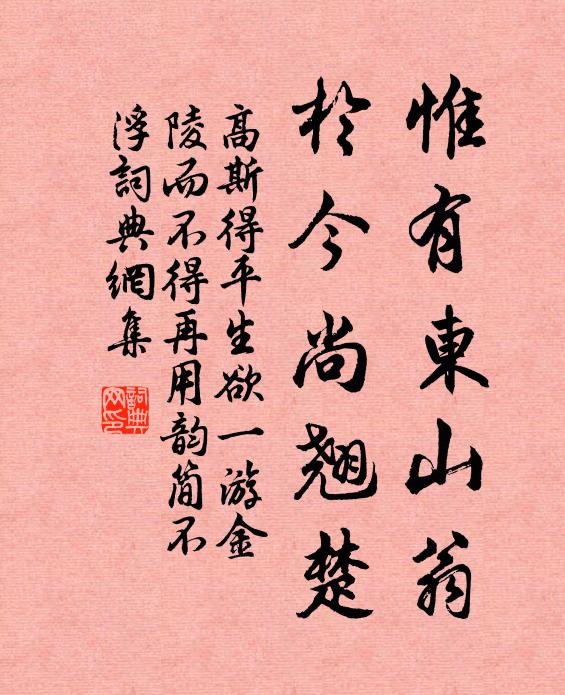 惟有東山翁
於今尚翹楚
高斯得平生欲一游金
陵而不得再用韵简不
浮詞典網集
詞典網印